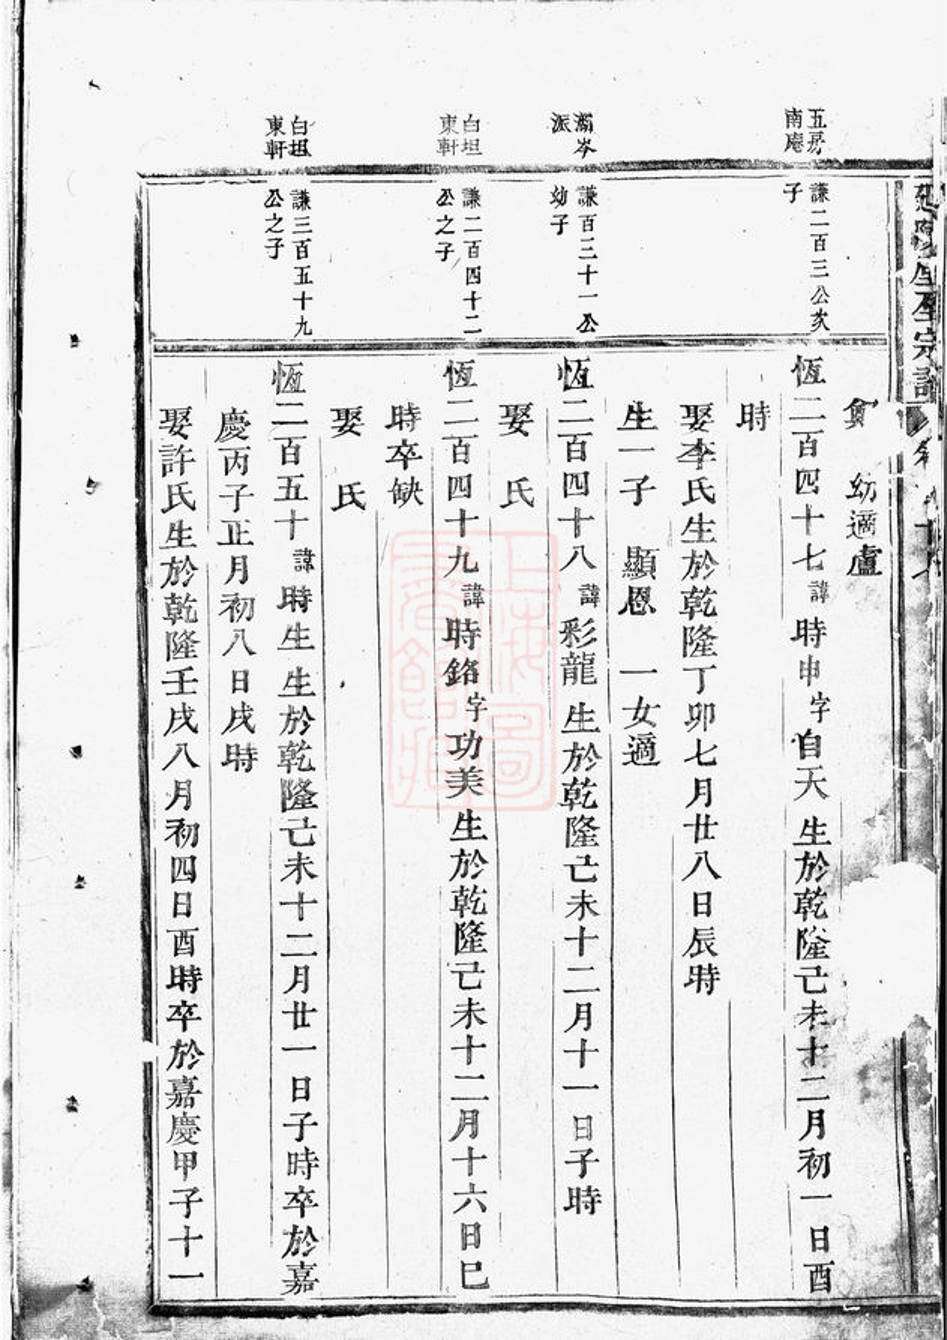 幼適盧
五房
南庵
謙二百三公次
子
恆二百四十七諱時申字自天生於乾隆己未十二月初一日酉
時
娶李氏生於乾隆丁卯七月廿八日辰時
生一子顯恩一女適
岑
派
謙百三十一公
幼子
恆二百四十八諱彩龍生於乾隆己未十二月十一日子時
娶氏
白坦
東軒
謙二百四十二
公之子
恆二百四十九諱時銘字功美生於乾隆己未十二月十六日巳
時卒缺
娶氏
白坦
東軒
謙三百五十九
公之子
恆二百五十諱時生生於乾隆己未十二月廿一日子時卒於嘉
慶丙子正月初八日戌時
娶許氏生於乾隆壬戌八月初四日酉時卒於嘉慶甲子十一